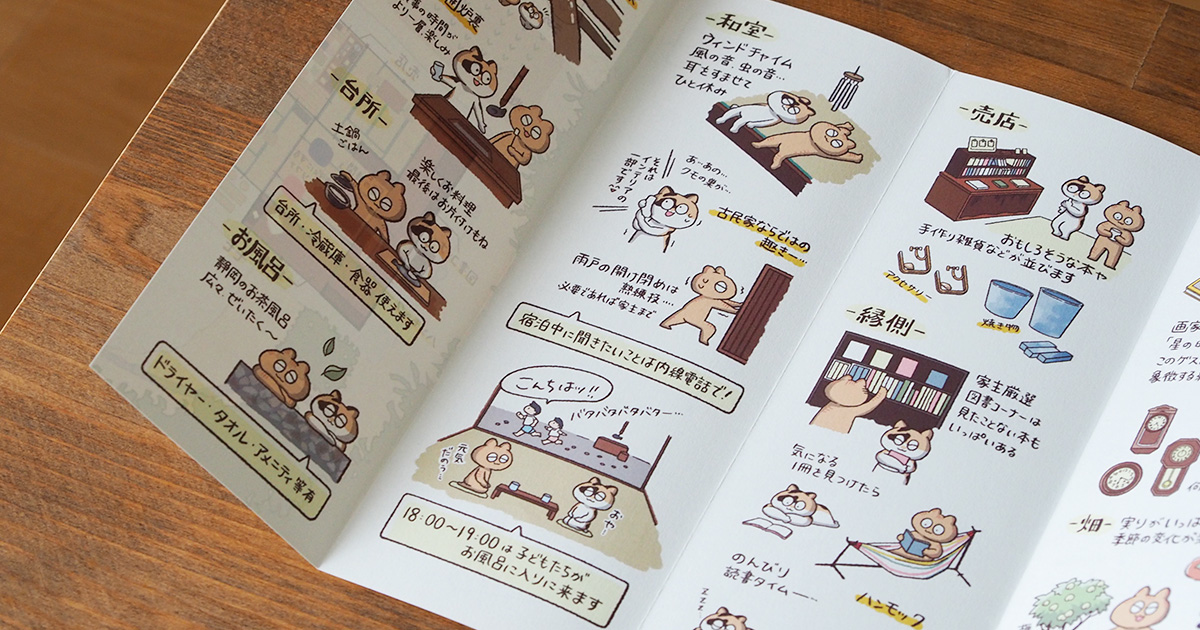 囲炉裏
事の時間が
より一層、楽しみ
-台所-
土鍋
ごはん
楽しくお料理
最後はお片付けもね
台所・冷蔵庫・食器 使えます
-お風呂-
静岡のお茶風呂
広々、ぜいたく〜
ドライヤー・タオル・アメニティ等有
-和室-
ウィンドチャイム
風の音、虫の音…
耳をすませて
ひと休み
あ…あの…
クモの巣が…
それは
インテリアの
一部です
古民家ならではの
趣き…
雨戸の開け閉めは
熟練技…
必要であれば家主まで
宿泊中に聞きたいことは内線電話で!
こんちはッ!!
バタバタバタバター…
元気
だのう…
おや
18:00〜19:00は子どもたちが
お風呂に入りに来ます
-売店-
おもしろそうな本や
手作り雑貨などが並びます
アクセサリー
焼き物
-縁側-
家主厳選
図書コーナーは
見たことない本も
いっぱいある
気になる
1冊を見つけたら
のんびり
読書タイム―…
ハンモック
zzz
画家
「星の
このゲス
象徴する
-畑-
実りがいっぱ
季節の変化が